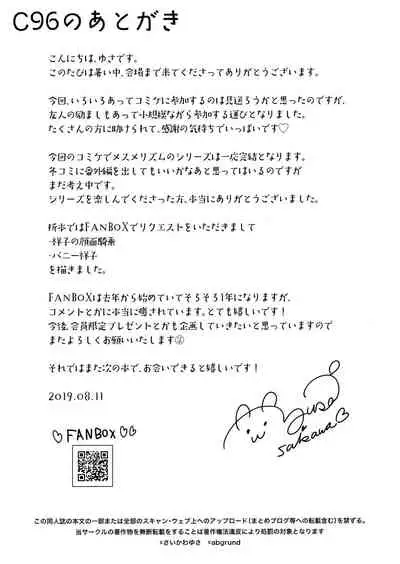 C96のあとがき
こんにちは、ゆさです。
このたびは暑い中、会場まで来てくださってありがとうございます。
今回、いろいろあってコミケに参加するのは見送ろうかと思ったのですが、
友人の励ましもあって小規模ながら参加する運びとなりました。
たくさんの方に助けられて、感謝の気持ちでいっぱいです♡
今回のコミケでメスメリズムのシリーズは一応完結となります。
冬コミに番外編を出してもいいかなあと思ってはいるのですが
まだ考え中です。
シリーズを楽しんでくださった方、本当にありがとうございました。
折本ではFANBOXでリクエストをいただきまして
・祥子の顔面騎乗
・バニー祥子
を描きました。
FANBOXは去年から始めていてそろそろ1年になりますが、
コメントとかに本当に癒されています。とても嬉しいです！
今後、会員限定プレゼントとかも企画していきたいと思っていますので
またよろしくお願いいたします
それではまた次の本で、お会いできると嬉しいです！
2019.08.11
Yusa
saikawa
♡FANBOX♡♡
この同人誌の本文の一部または全部のスキャン・ウェブ上へのアップロード（まとめブログ等への転載含む）を禁ずる。
当サークルの著作物を無断転載をすることは著作権法違反により処罰の対象となります
©さいかわゆさ ©abgrund